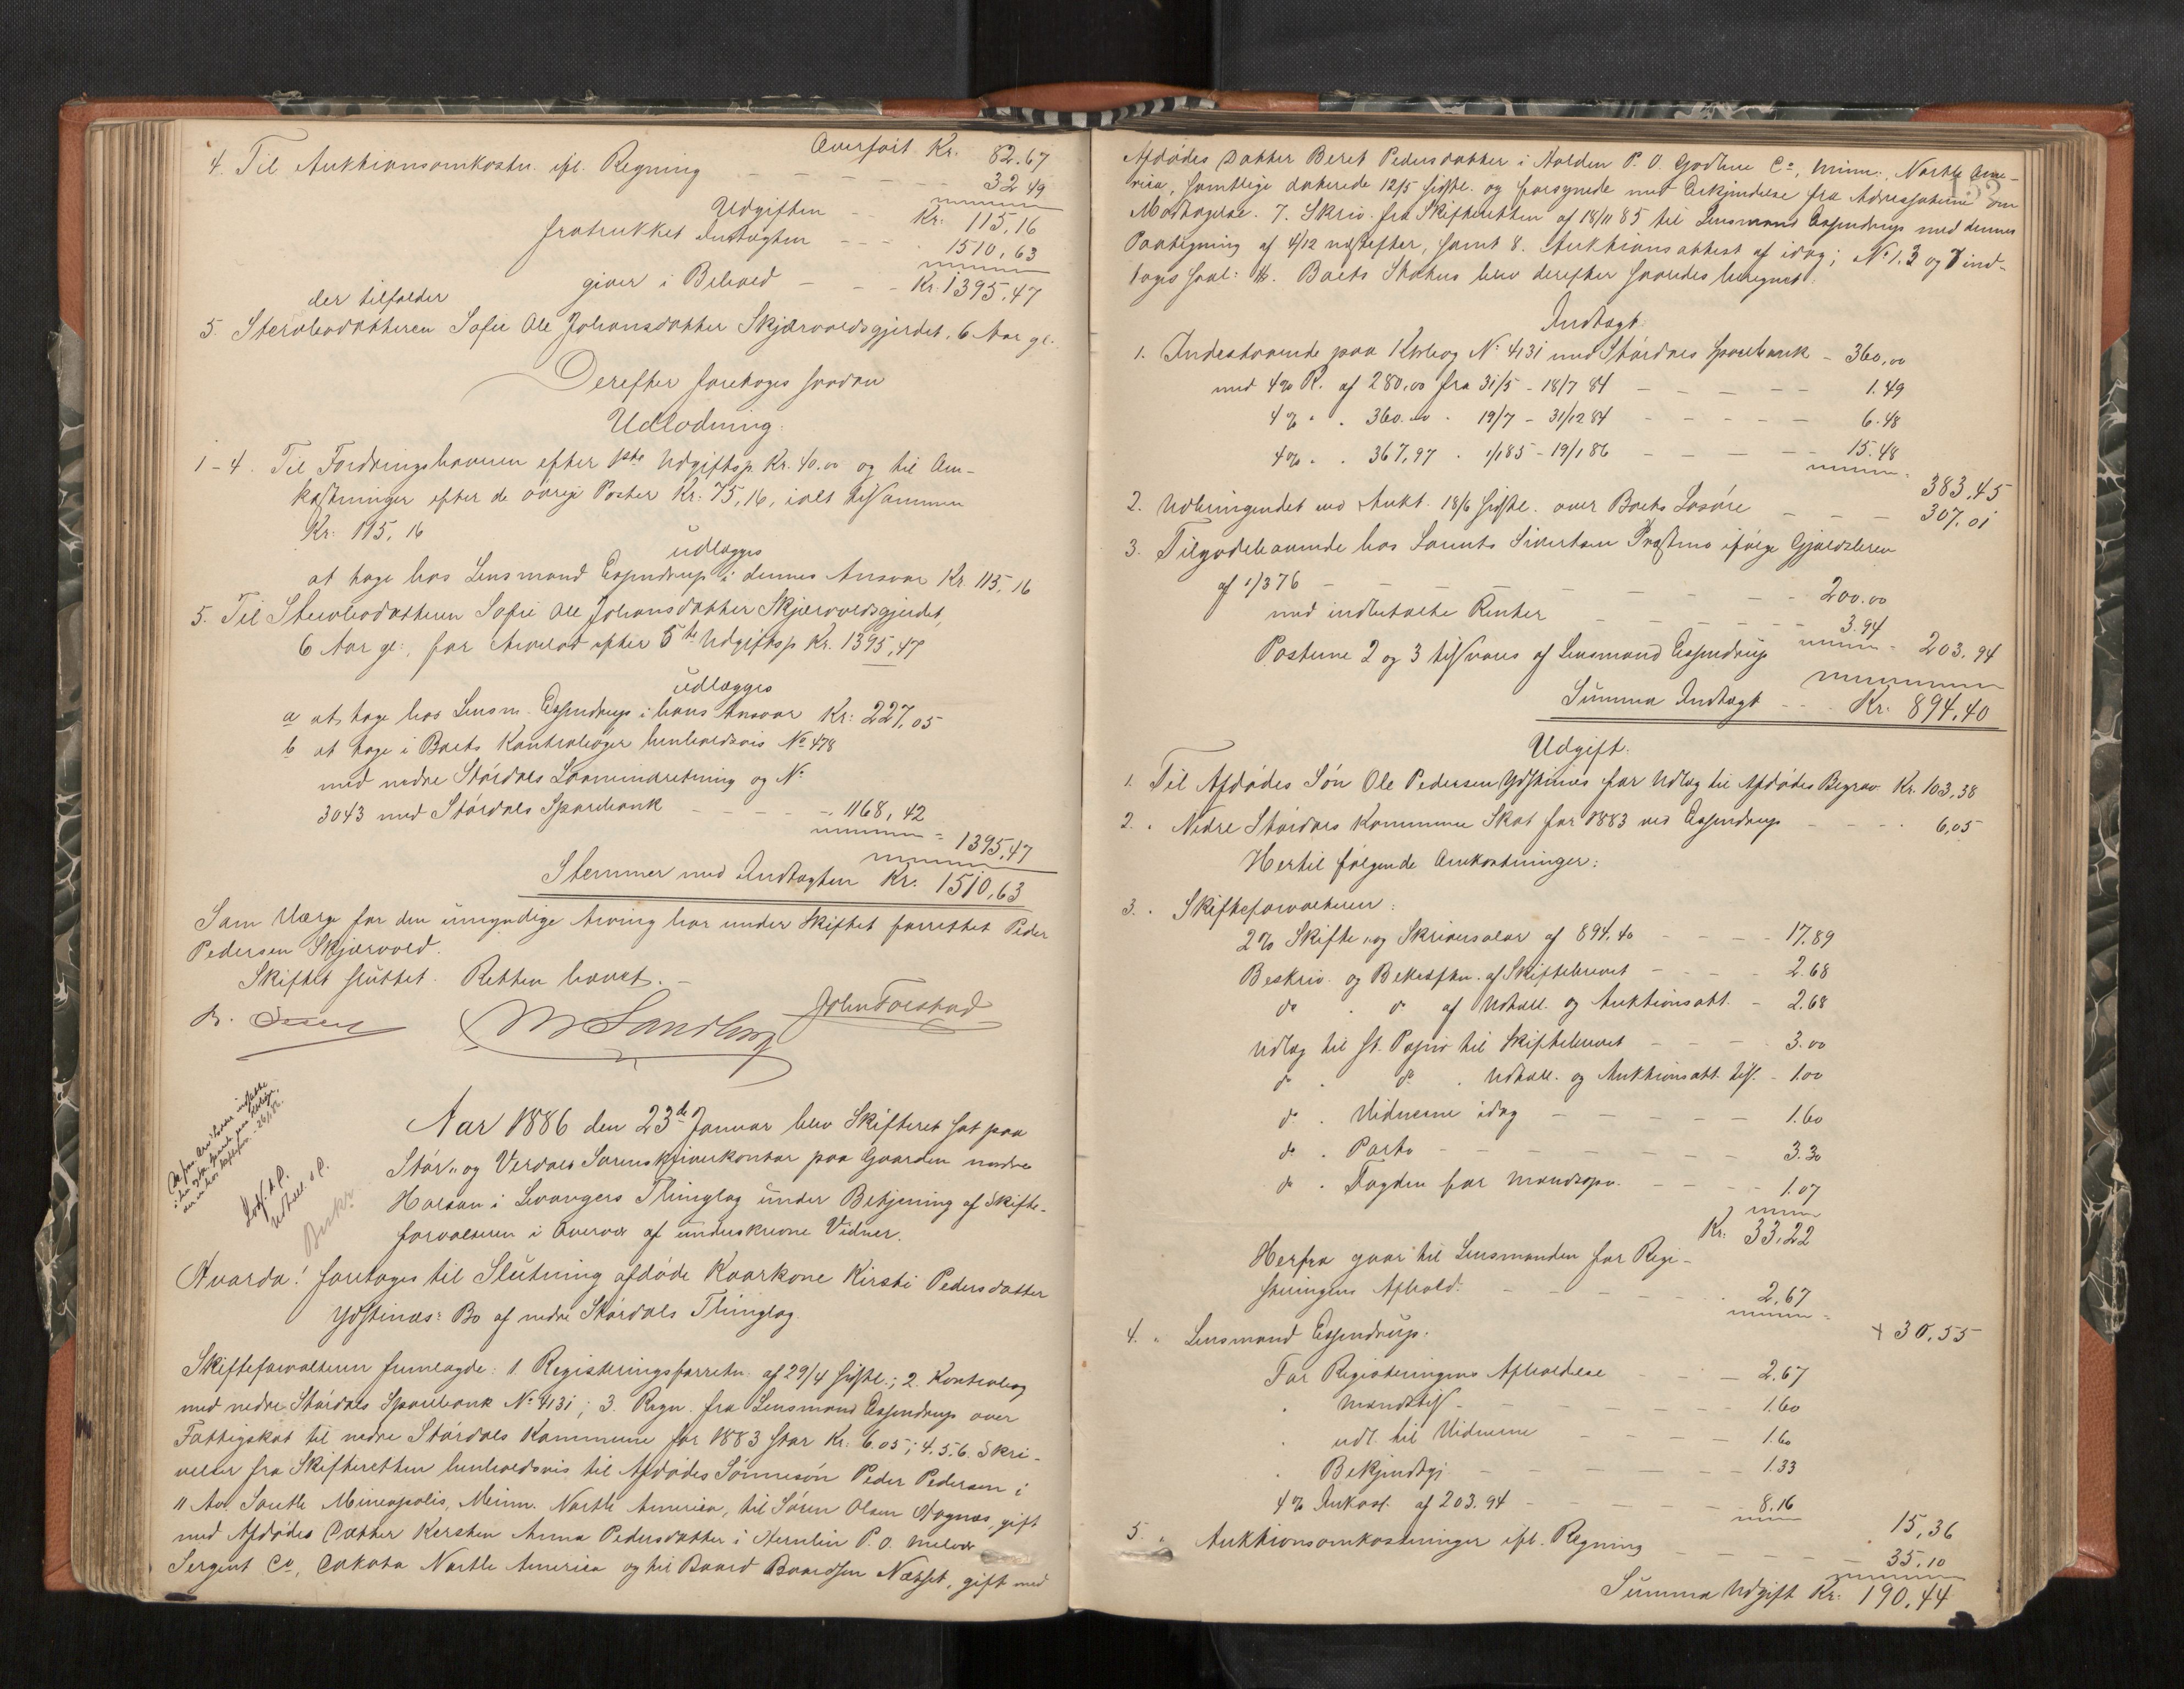 Overført Kr. 82.67
4. Til Auktionsomkostn. ifl. Regning - - - - - 32 49
Udgiften - - Kr. 115,16
fratrukket Indtægten - - - 1510,63
giver i Behold - - - Kr. 1395,47
der tilfalder
5. Stervbodatteren Sofie Ole Johansdatter Skjærvoldsgjerdet, 6 Aar gl.
Derefter foretoges saadan
Udlodning:
1-4. Til Fordringshaveren efter 1ste Udgiftsp. Kr. 40.00 og til Om-
kostninger efter de øvrige Poster Kr. 75,16, ialt tilsammen
Kr. 115,16
udlægges
at tage hos Lensmand Essendrup i dennes Ansvar Kr. 115,16
5. Til Stervbodatteren Sofie Ole Johansdatter Skjærvoldsgjerdet,
6 Aar gl., for Arvelod efter 5te Udgiftsp. Kr. 1395,47
udlægges
a at tage hos Lensm. Essendrup i hans Ansvar Kr: 227,05
b at tage i Boets Kontrabøger henholdsvis No 478
med nedre Størdals Laaneindretning og No
3043 med Størdals Sparebank - - - - 1168,42
1395,47
Stemmer med Indtægten Kr. 1510,63
Som Værge for den umyndige Arving har under Skiftet forrettet Peder
Pedersen Skjærvold.
Skiftet sluttet. Retten hævet.
M Sandberg John Forstad
Aar 1886 den 23de Januar blev Skifteret sat paa
Stør- og Verdals Sorenskriverkontor paa Gaarden nedre
Halsan i Levangers Thinglag under Betjening af Skifte-
forvalteren i Overvær af underskrevne Vidner.
Hvorda! foretoges til Slutning afdøde Kaarkone Kirsti Pedersdatter
Ydstines: Bo af nedre Størdals Thinglag.
Skifteforvalteren fremlagde: 1. Registreringsforretn. af 29/4 sidstl.; 2. Kontrabog
med nedre Størdals Sparebank No 4131; 3. Regn. fra Lensmand Essendrup over
Fattigskat til nedre Størdals Kommune for 1883 stor Kr. 6.05; 4.5.6. Skri-
velser fra Skifteretten henholdsvis til Afdødes Sønnesøn Peder Pedersen i
11 Av. South Mineapolis, Meinn. North America, til Søren Olsen Hognæs, gift
med Afdødes Datter Kersten Anna Pedersdatter i Hernlin P. O.
Sergent Co, Dakota North America og til Baard Baardsen Næsset, gift med
Afdødes Datter Beret Pedersdatter i Norden P. O. Godhue Co, Minn., North Ame-
rica, samtlige daterede 12/5 sidstl. og forsynede med Erkjendelse fra Adressaterne om
Modtagelse. 7. Skriv. fra Skifteretten af 18/11 85 til Lensmand Essendrup med dennes
Paategning af 4/12 næstefter, samt 8. Auktionsattest af idag; No 1.3 og 7 ind-
toges saal: Boets Status blev derefter saaledes beregnet:
Indtægt
1. Indestaaende paa Ktrbog No 4131 med Størdals Sparebank - 360,00
med 4% R. af 280,00 fra 31/5 - 18/7 84 - - - - - 1.49
4% " . 360.00 . 19/7 - 31/12 84 - - - - - 6.48
4% " . 367,97 . 1/1 85 - 19/1 86 - - - - - 15.48
383,45
2. Udbringendet ved Aukt. 18/6 sidstl. over Boets Løsøre - - - 307,01
3. Tilgodehavende hos Lorents Sivertsen Præstmo ifølge Gjældsbrev
af 1/3 76 - - - - - - - 200.00
med indbetalte Renter - - - - - 3.94
203.94
Posterne 2 og 3 tilsvares af Lensmand Essendrup
Summa Indtægt - - Kr. 894,40
Udgift.
1. Til Afdødes Søn Ole Pedersen Ydstines for Udlæg til Afdødes Begrav. Kr. 103,38
2. " Nedre Størdals Kommune Skat for 1883 ved Essendrup - - - - 6,05
Hertil følgende Omkostninger:
3. " Skifteforvalteren:
2% Skifte- og Skriversalær af 894,40 - - - - 17.89
Beskriv. og Bekræftn. af Skiftebrevet - - - - 2.68
do . do af Udtall. og Auktionsatt. - 2.68
Udlæg til st. Papir til Skiftebrevet - - - 3.00
do . do . Udtall. og Auktionsatt. tils. - 1.00
do . Vidnerne idag - - - - - 1.60
do . Porto - - - - - - 3.30
do . Fogden for Mandsopn. - - - 1.07
Kr. 33,22
Herfra gaar til Lensmanden for Regi-
streringens Afhold. - - - - - 2,67
30,55
4. " Lensmand Essendrup:
For Registreringens Afholdelse - - - 2.67
" Mandtill. - - - - - - 1.60
" udl. til Vidnerne - - - - 1.60
" Bekjendtgj. - - - - - - 1.33
4% Inkass. af 203.94 - - - - - 8.16
15,36
5. " Auktionsomkostninger ifl. Regning - - - - 35,10
Summa Udgift Kr. 190,44